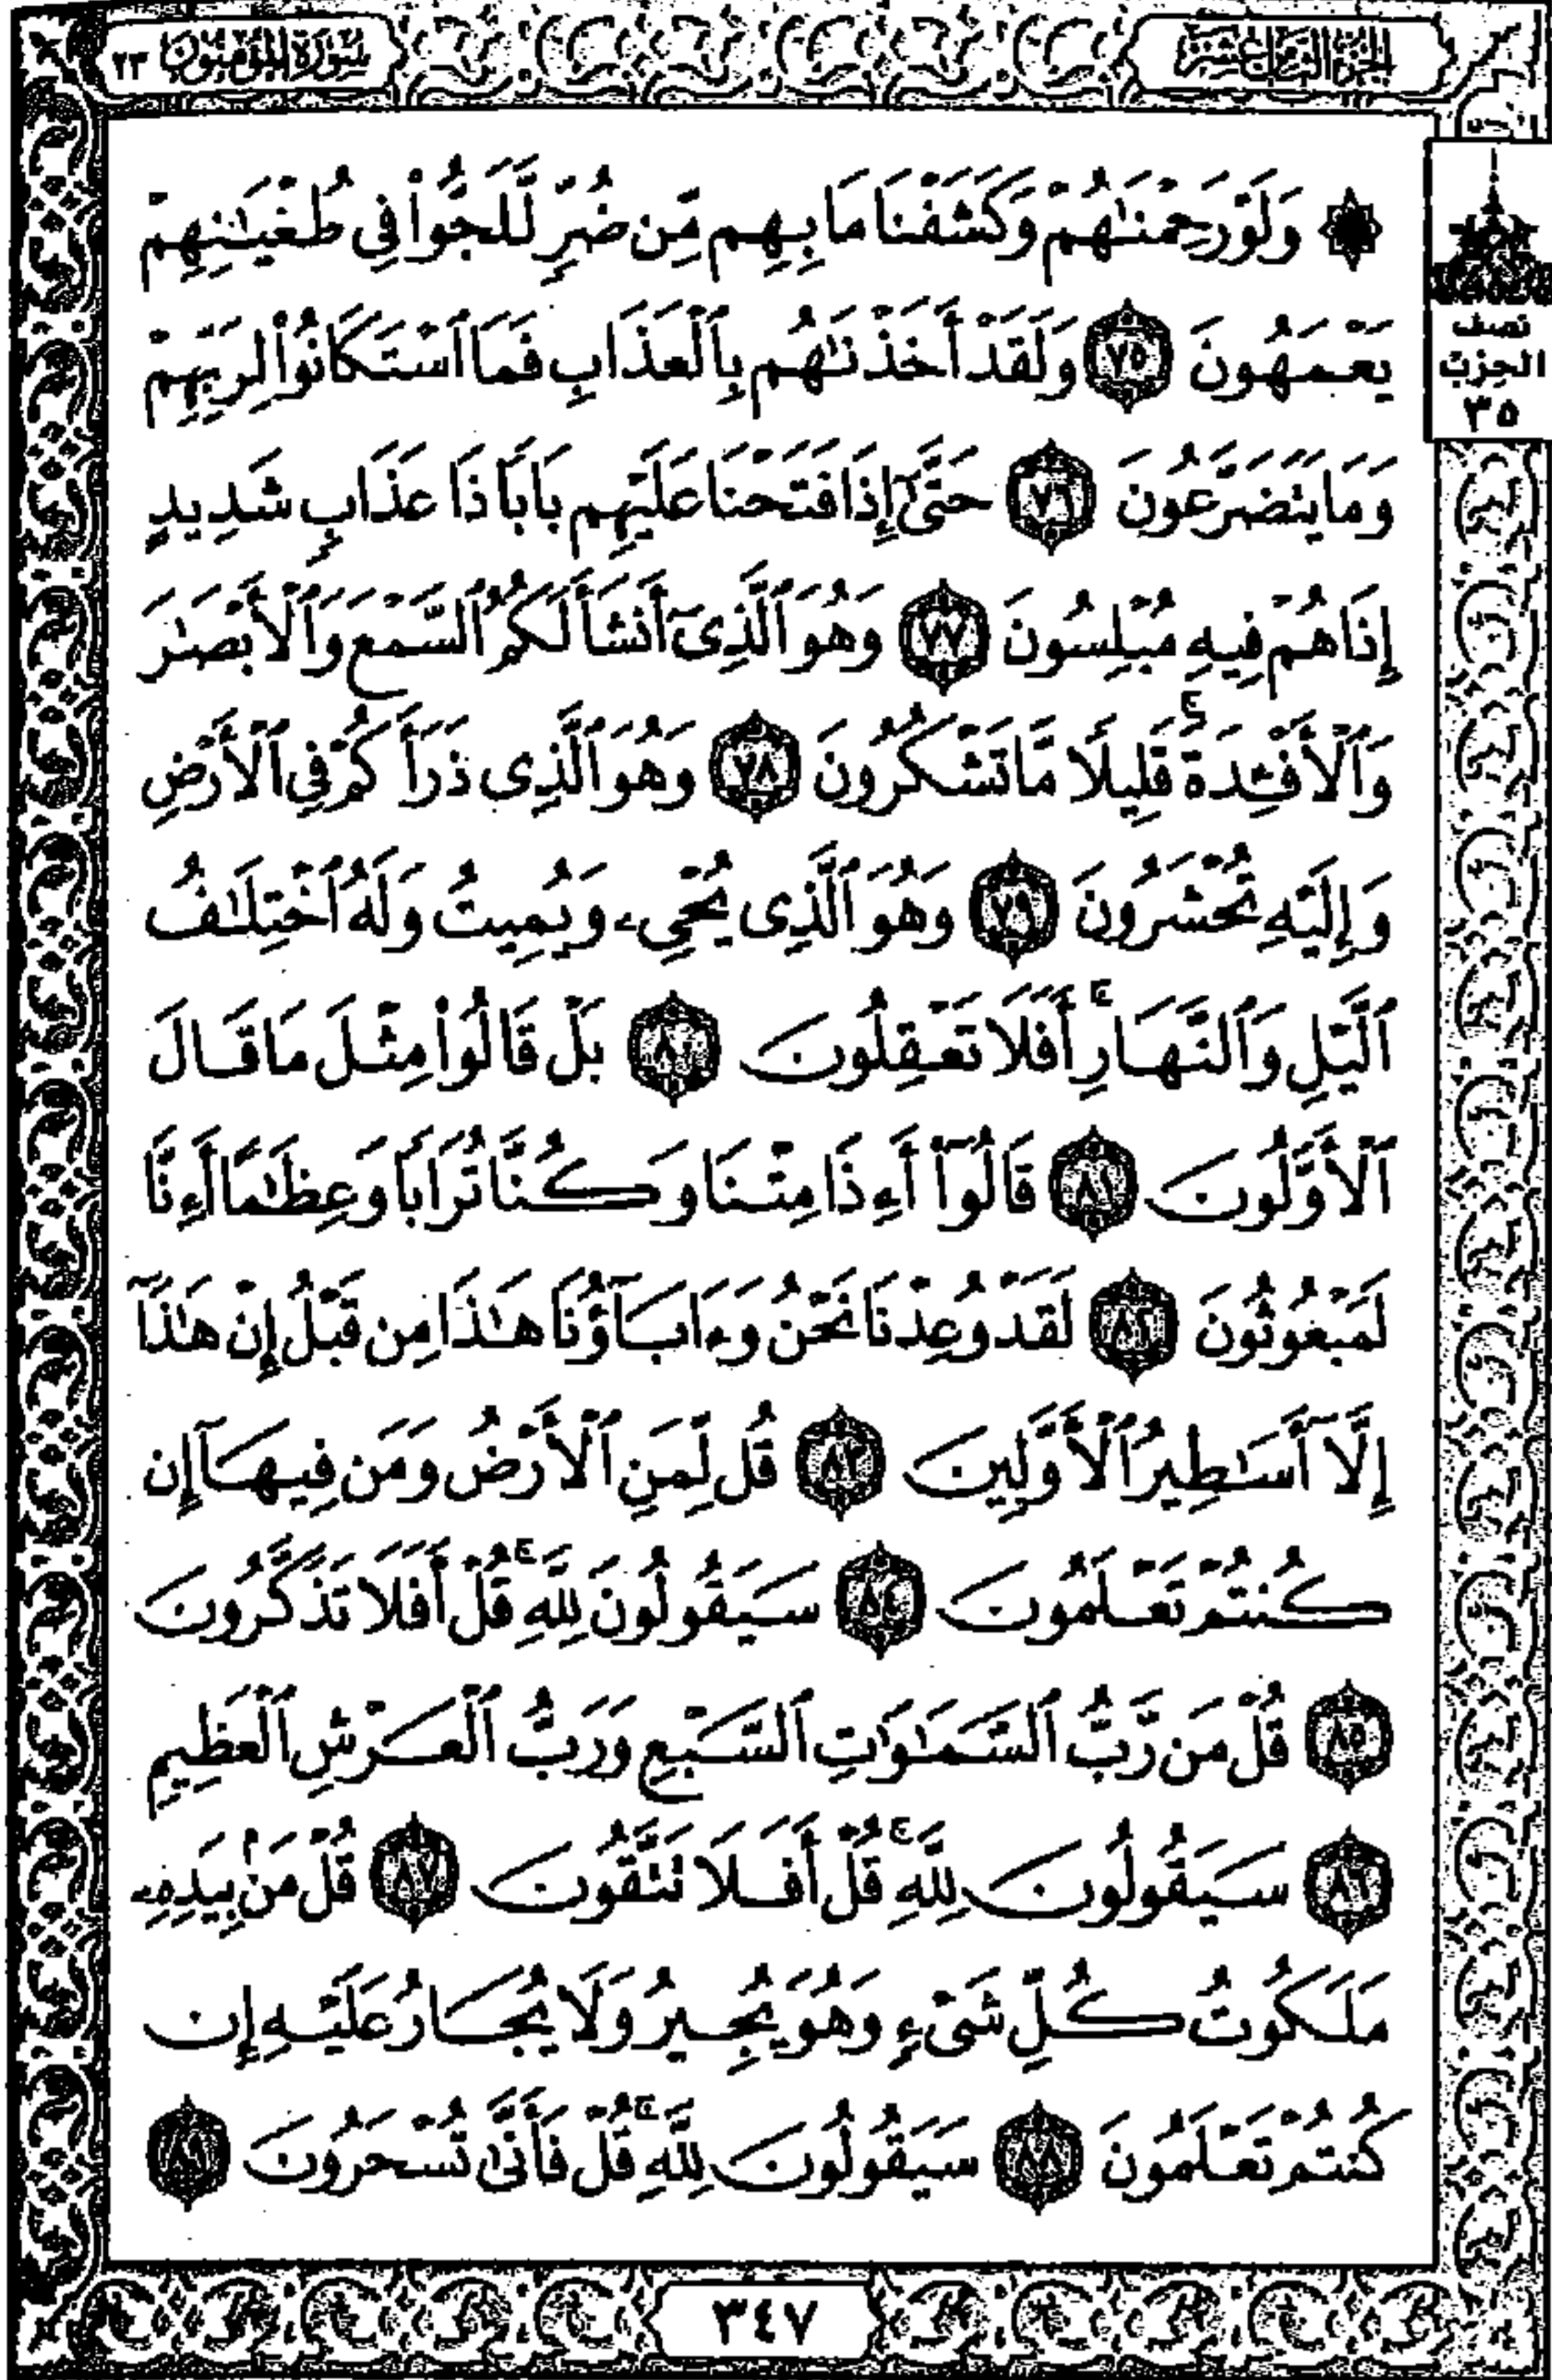 الجزء الثامن عشر
سورة المؤمنون ٢٣
۞ وَلَوْ رَحِمْنَٰهُمْ وَكَشَفْنَا مَا بِهِم مِّن ضُرٍّ لَّلَجُّوا۟ فِى طُغْيَٰنِهِمْ
يَعْمَهُونَ ٧٥ وَلَقَدْ أَخَذْنَٰهُم بِٱلْعَذَابِ فَمَا ٱسْتَكَانُوا۟ لِرَبِّهِمْ
وَمَا يَتَضَرَّعُونَ ٧٦ حَتَّىٰٓ إِذَا فَتَحْنَا عَلَيْهِم بَابًا ذَا عَذَابٍ شَدِيدٍ
إِذَا هُمْ فِيهِ مُبْلِسُونَ ٧٧ وَهُوَ ٱلَّذِىٓ أَنشَأَ لَكُمُ ٱلسَّمْعَ وَٱلْأَبْصَٰرَ
وَٱلْأَفْـِٔدَةَ ۚ قَلِيلًا مَّا تَشْكُرُونَ ٧٨ وَهُوَ ٱلَّذِى ذَرَأَكُمْ فِى ٱلْأَرْضِ
وَإِلَيْهِ تُحْشَرُونَ ٧٩ وَهُوَ ٱلَّذِى يُحْىِۦ وَيُمِيتُ وَلَهُ ٱخْتِلَٰفُ
ٱلَّيْلِ وَٱلنَّهَارِ ۚ أَفَلَا تَعْقِلُونَ ٨٠ بَلْ قَالُوا۟ مِثْلَ مَا قَالَ
ٱلْأَوَّلُونَ ٨١ قَالُوٓا۟ أَءِذَا مِتْنَا وَكُنَّا تُرَابًا وَعِظَٰمًا أَءِنَّا
لَمَبْعُوثُونَ ٨٢ لَقَدْ وُعِدْنَا نَحْنُ وَءَابَآؤُنَا هَٰذَا مِن قَبْلُ إِنْ هَٰذَآ
إِلَّآ أَسَٰطِيرُ ٱلْأَوَّلِينَ ٨٣ قُل لِّمَنِ ٱلْأَرْضُ وَمَن فِيهَآ إِن
كُنتُمْ تَعْلَمُونَ ٨٤ سَيَقُولُونَ لِلَّهِ ۚ قُلْ أَفَلَا تَذَكَّرُونَ
٨٥ قُلْ مَن رَّبُّ ٱلسَّمَٰوَٰتِ ٱلسَّبْعِ وَرَبُّ ٱلْعَرْشِ ٱلْعَظِيمِ
٨٦ سَيَقُولُونَ لِلَّهِ ۚ قُلْ أَفَلَا تَتَّقُونَ ٨٧ قُلْ مَنۢ بِيَدِهِۦ
مَلَكُوتُ كُلِّ شَىْءٍ وَهُوَ يُجِيرُ وَلَا يُجَارُ عَلَيْهِ إِن
كُنتُمْ تَعْلَمُونَ ٨٨ سَيَقُولُونَ لِلَّهِ ۚ قُلْ فَأَنَّىٰ تُسْحَرُونَ ٨٩
نصف
الحزب
٣٥
٣٤٧